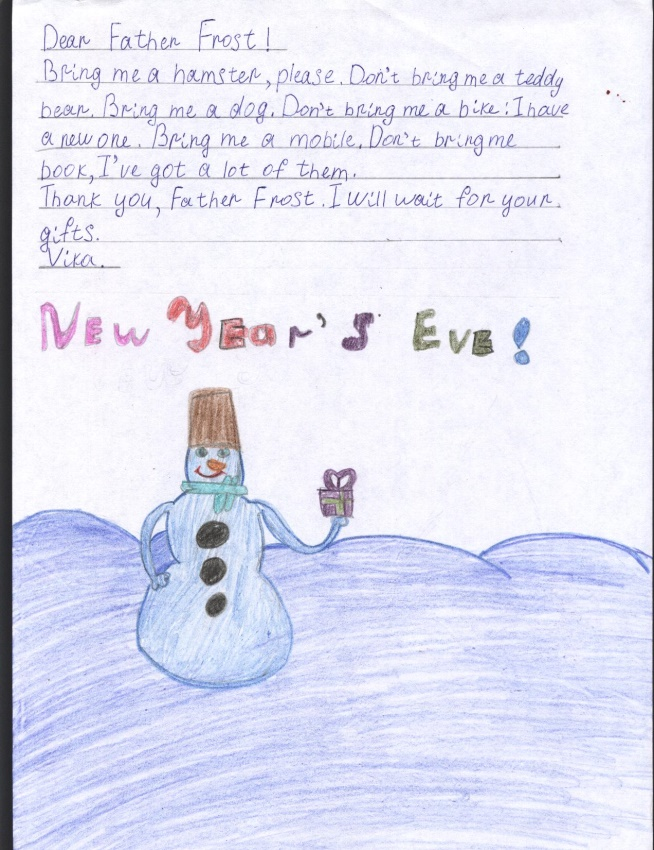 Dear Father Frost!
Bring me a hamster, please. Don't bring me a teddy
bear. Bring me a dog. Don't bring me a bike: I have
a new one. Bring me a mobile. Don't bring me
book, I've got a lot of them.
Thank you, Father Frost. I will wait for your
gifts.
Vika.
New Year's Eve!